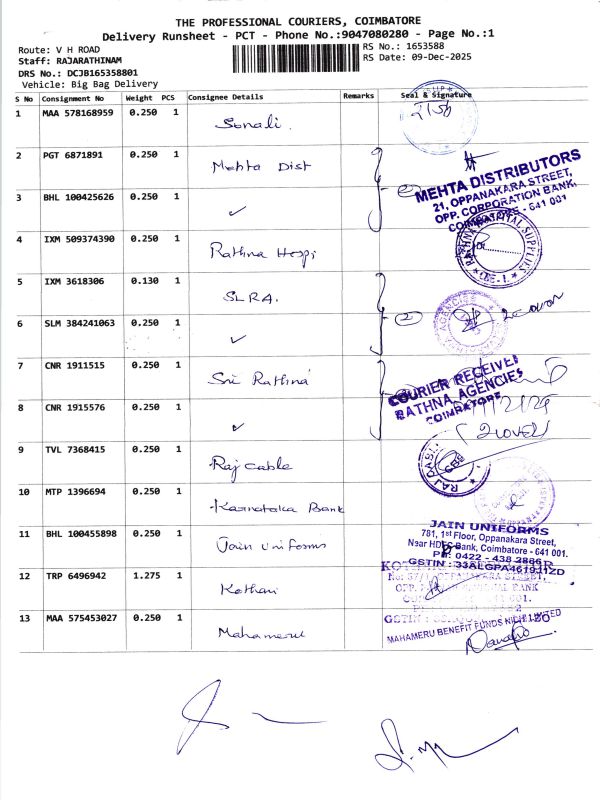 THE PROFESSIONAL COURIERS, COIMBATORE
Delivery Runsheet - PCT - Phone No.:9047080280 - Page No.:1
Route: V H ROAD
Staff: RAJARATHINAM
DRS No.: DCJB165358801
Vehicle: Big Bag Delivery
RS No.: 1653588
RS Date: 09-Dec-2025
S No Consignment No Weight PCS Consignee Details Remarks Seal & Signature
1 MAA 578168959 0.250 1 Sonali.
2 PGT 6871891 0.250 1 Mehta Dist
MEHTA DISTRIBUTORS
21, OPPANAKARA STREET,
OPP. CORPORATION BANK,
COIMBATORE - 641 001
3 BHL 100425626 0.250 1 ✓
4 IXM 509374390 0.250 1 Rathna Hospi
RATHNA HOSPITAL SUPPLIES
CBE-1
5 IXM 3618306 0.130 1 SLRA.
6 SLM 384241063 0.250 1 ✓
7 CNR 1911515 1 Sri Rathna
COURIER RECEIVED
RATHNA AGENCIES
COIMBATORE
8 CNR 1915576 0.250 1 ✓
9 TVL 7368415 0.250 1 Raj cable
10 MTP 1396694 0.250 1 Karnataka Bank
11 BHL 100455898 0.250 1 Jain Uniforms
JAIN UNIFORMS
781, 1st Floor, Oppanakara Street,
Near HDFC Bank, Coimbatore - 641 001.
PH: 0422 - 438 2866
GSTIN : 33ALGPA4619J1ZD
12 TRP 6496942 1.275 1 Kothari
13 MAA 575453027 0.250 1 Mahameru
MAHAMERU BENEFIT FUNDS NIDHI LIMITED